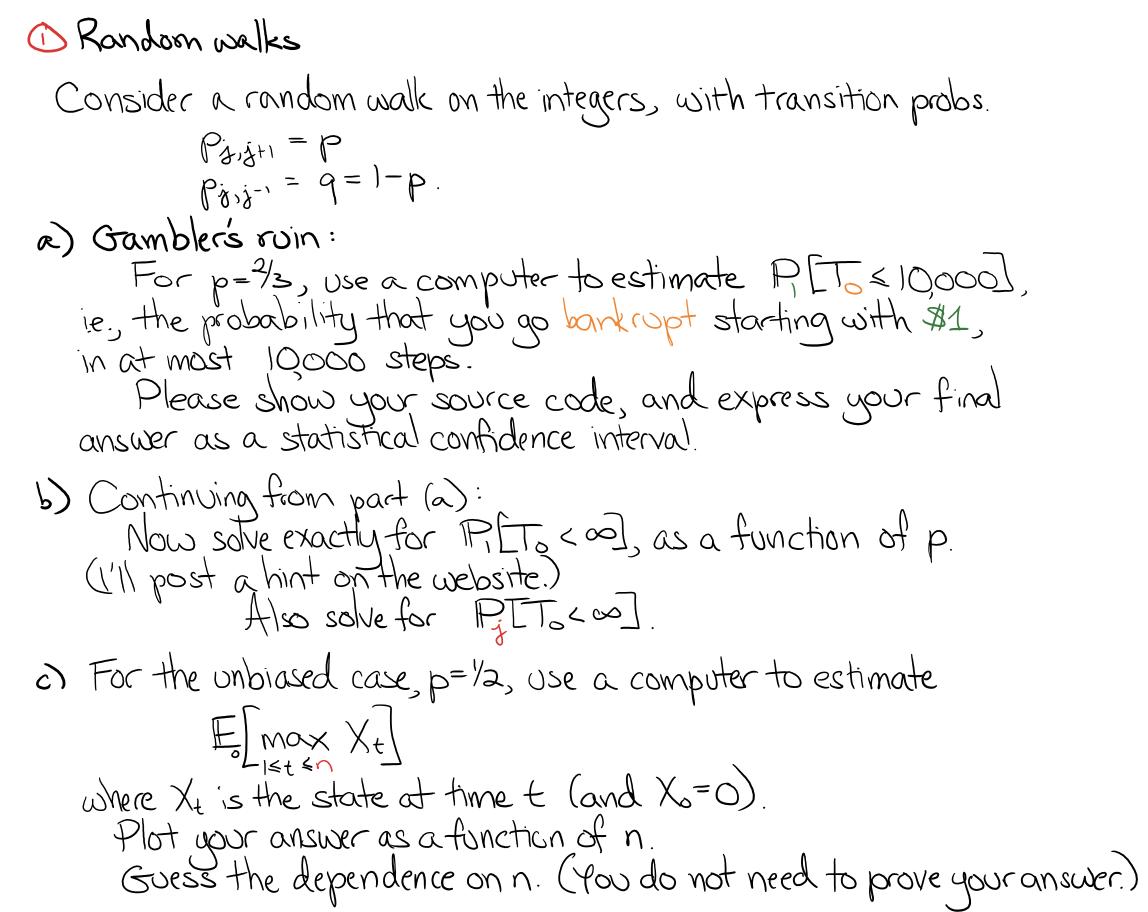 ① Random walks
Consider a random walk on the integers, with transition probs.
P_{j,j+1} = p
P_{j,j-1} = q = 1-p.
a) Gambler's ruin:
For p=2/3, use a computer to estimate ℙ₁[T₀ ≤ 10,000],
ie., the probability that you go bankrupt starting with $1,
in at most 10,000 steps.
Please show your source code, and express your final
answer as a statistical confidence interval.
b) Continuing from part (a):
Now solve exactly for ℙ₁[T₀ < ∞], as a function of p.
(I'll post a hint on the website.)
Also solve for ℙ_j[T₀ < ∞].
c) For the unbiased case, p=1/2, use a computer to estimate
𝔼₀[max X_t]
1≤t≤n
where X_t is the state at time t (and X₀=0).
Plot your answer as a function of n.
Guess the dependence on n. (You do not need to prove your answer.)